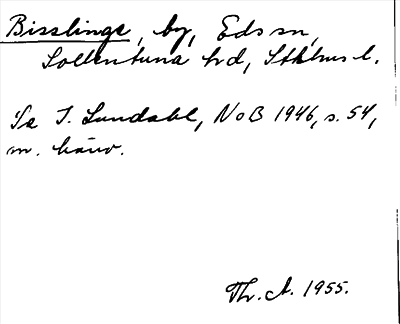 Bisslinge, by, Eds sn,
Sollentuna hd, Sthlms l.
Se I. Lundahl, NoB 1946, s. 54,
m. hänv.
Th. A. 1955.